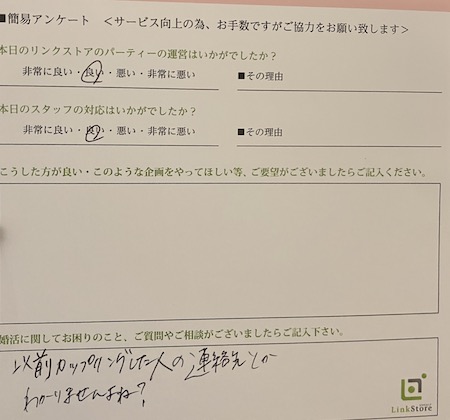 ■簡易アンケート <サービス向上の為、お手数ですがご協力をお願い致します>
本日のリンクストアのパーティーの運営はいかがでしたか？
非常に良い・良い・悪い・非常に悪い ■その理由
本日のスタッフの対応はいかがでしたか？
非常に良い・良い・悪い・非常に悪い ■その理由
こうした方が良い・このような企画をやってほしい等、ご要望がございましたらご記入ください。
婚活に関してお困りのこと、ご質問やご相談がございましたらご記入下さい。
以前カップリングした人の連絡先とか
わかりませんよね？
LinkStore